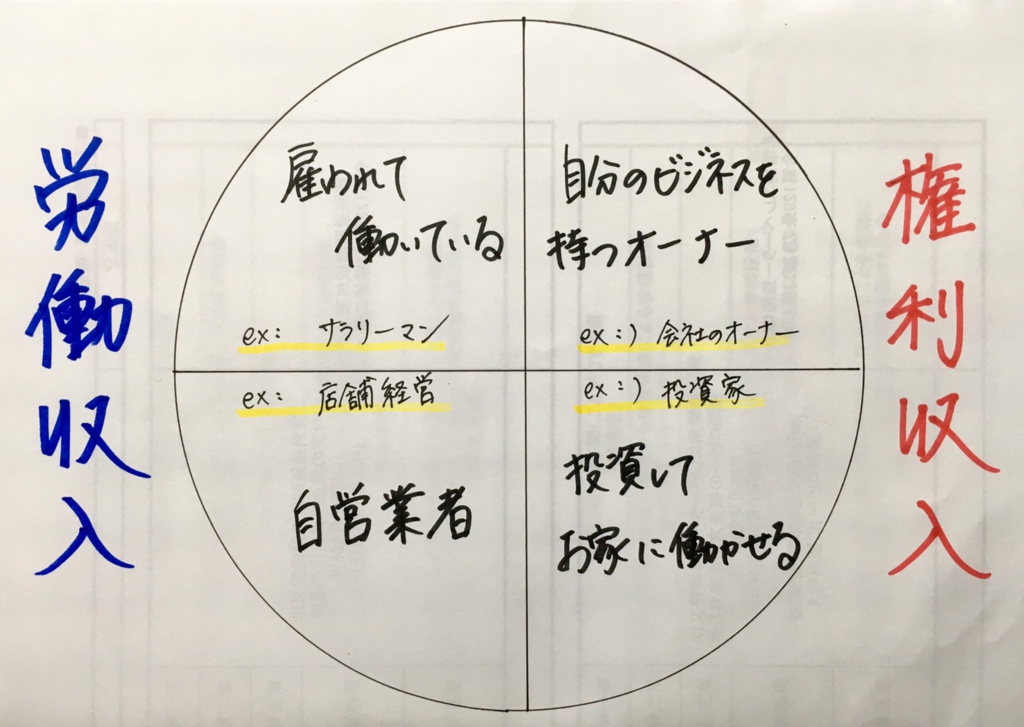 労働収入
雇われて
働いている
ex: サラリーマン
自分のビジネスを
持つオーナー
ex:) 会社のオーナー
ex: 店舗経営
自営業者
ex:) 投資家
投資して
お家に働かせる
権利収入